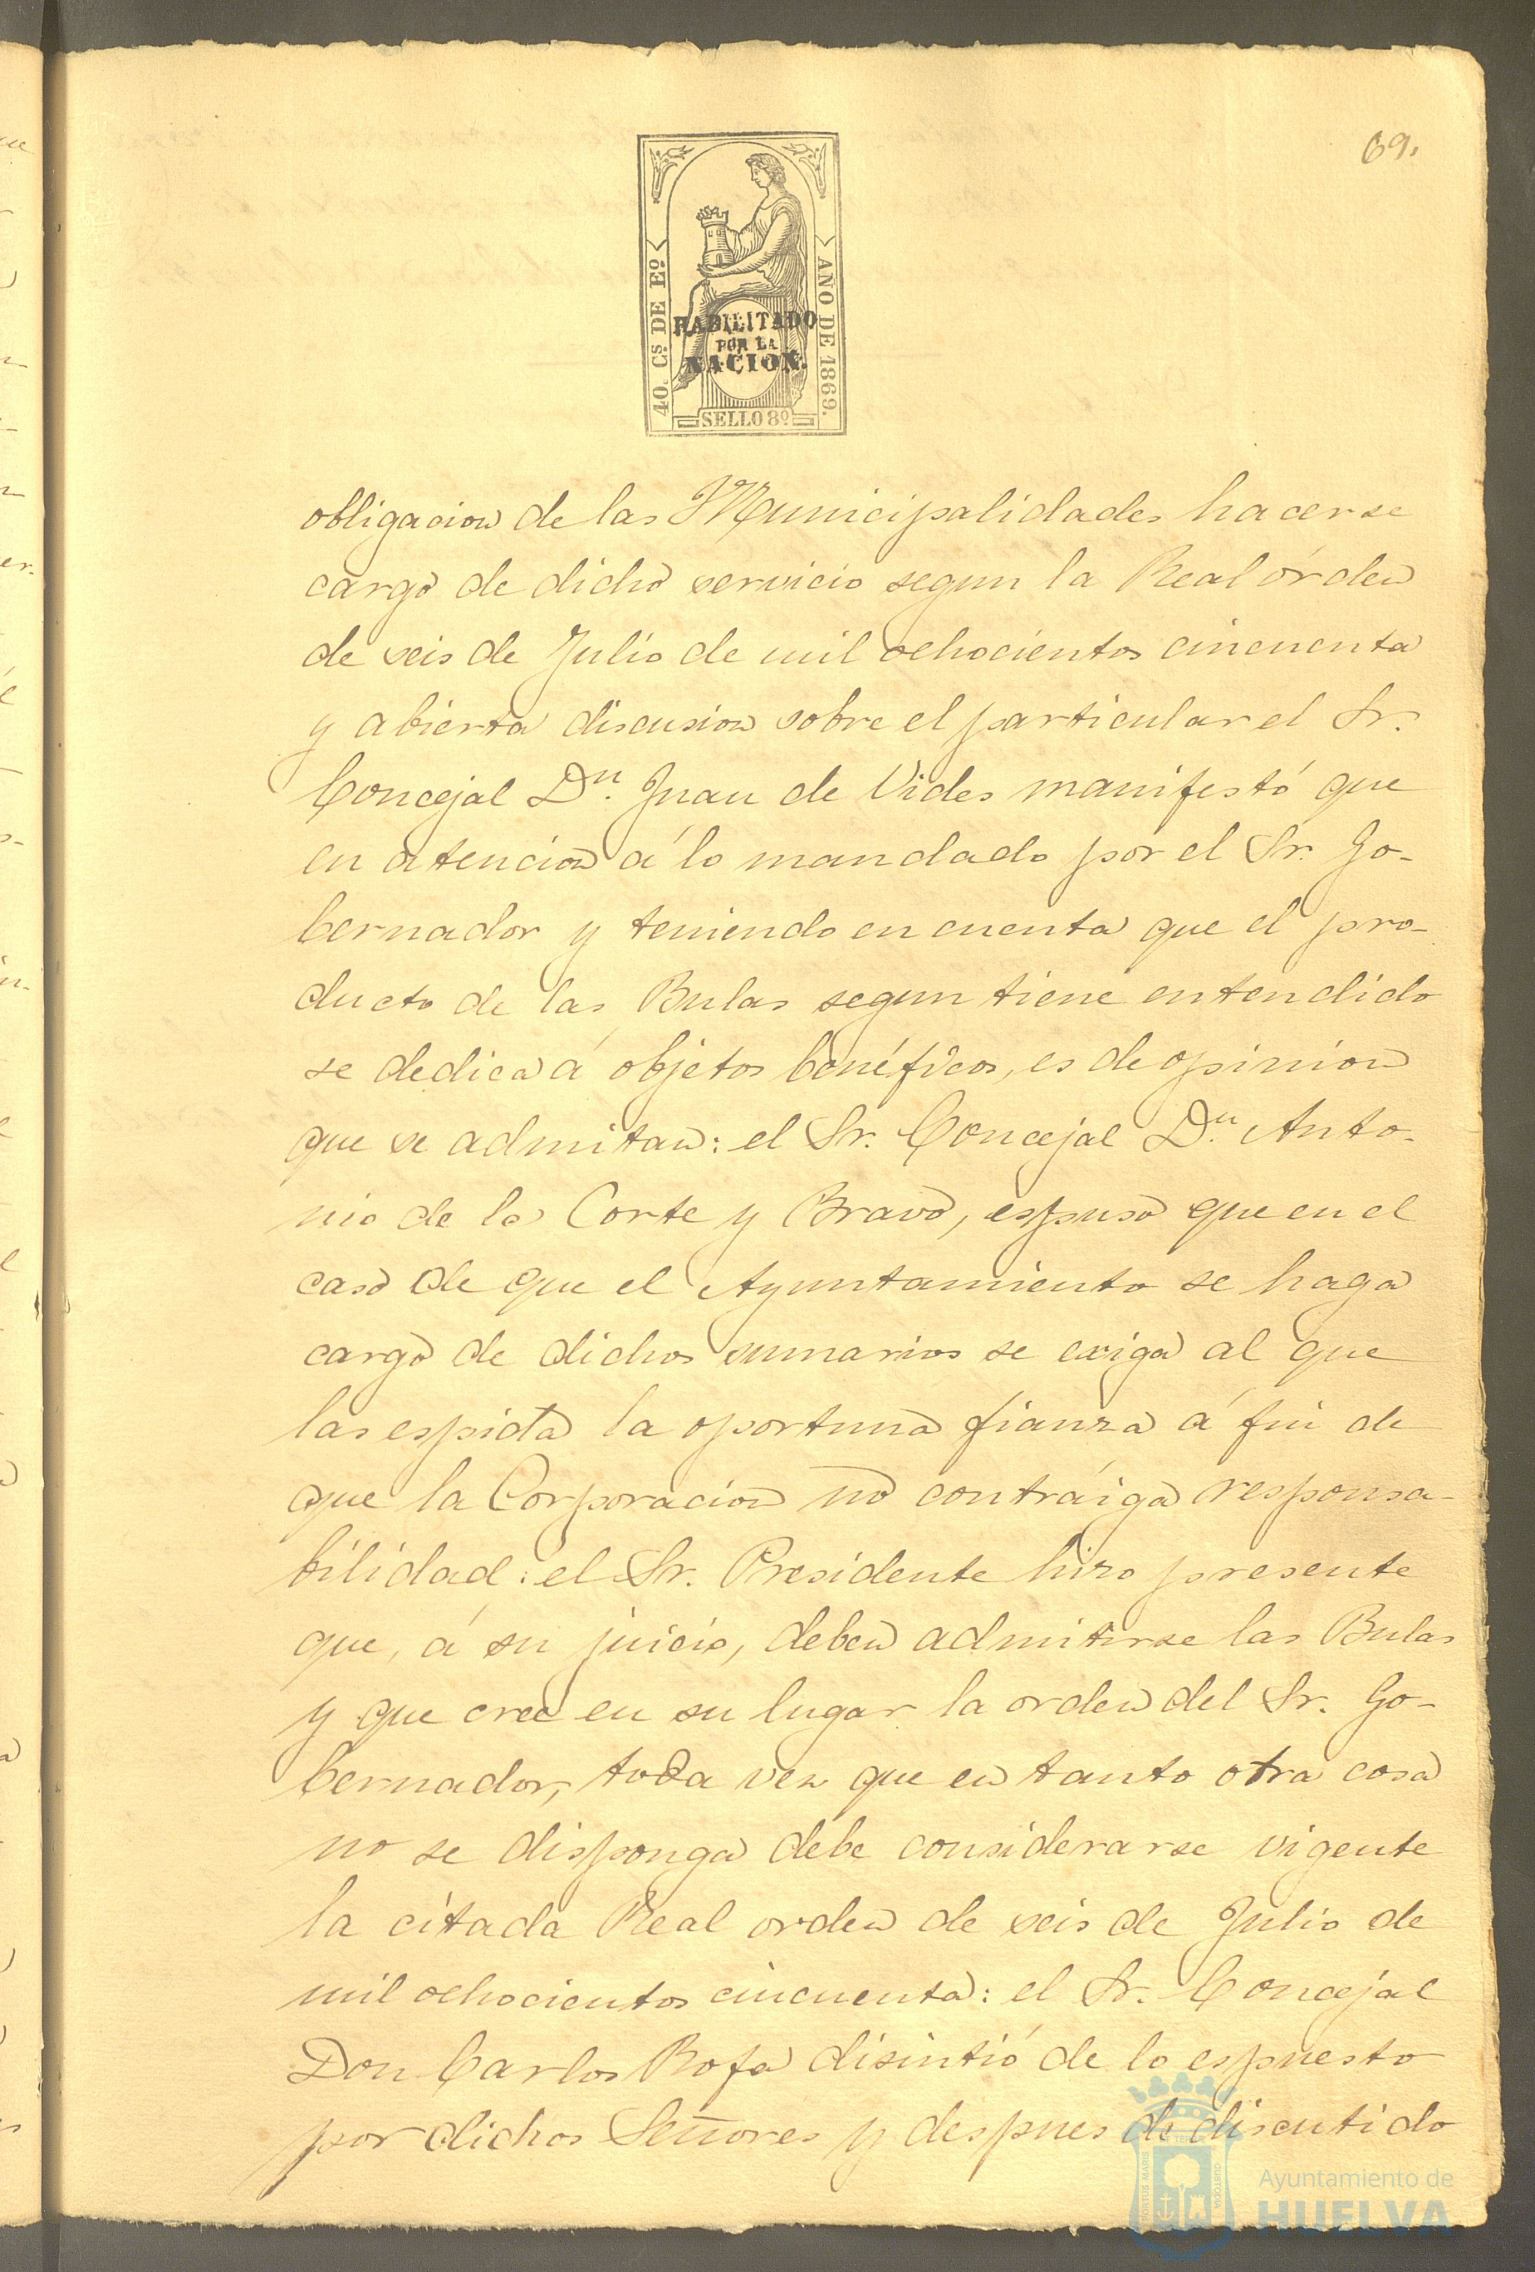 69.
40. Cs. DE Eº.
AÑO DE 1869.
HABILITADO
POR LA
NACION.
SELLO 8º
obligacion de las Municipalidades hacerse
cargo de dicho servicio segun la Real órden
de seis de Julio de mil ochocientos cincuenta
y abierta discusion sobre el particular el Sr.
Concejal Dn. Juan de Vides manifestó que
en atencion á lo mandado por el Sr. Go-
bernador y teniendo en cuenta que el pro-
ducto de las Bulas segun tiene entendido
se dedica á objetos benéficos, es de opinion
que se admitan: el Sr. Concejal Dn. Anto-
nio de la Corte y Bravo, espuso que en el
caso de que el Ayuntamiento se haga
cargo de dichos sumarios se exiga al que
las espida la oportuna fianza á fin de
que la Corporacion no contráiga responsa-
bilidad: el Sr. Presidente hizo presente
que, á su juicio, deben admitirse las Bulas
y que cree en su lugar la orden del Sr. Go-
bernador, toda vez que en tanto otra cosa
no se disponga debe considerarse vigente
la citada Real orden de seis de Julio de
mil ochocientos cincuenta: el Sr. Concejal
Don Carlos Rofa disintió de lo espuesto
por dichos Señores y despues de discutido
Ayuntamiento de
HUELVA